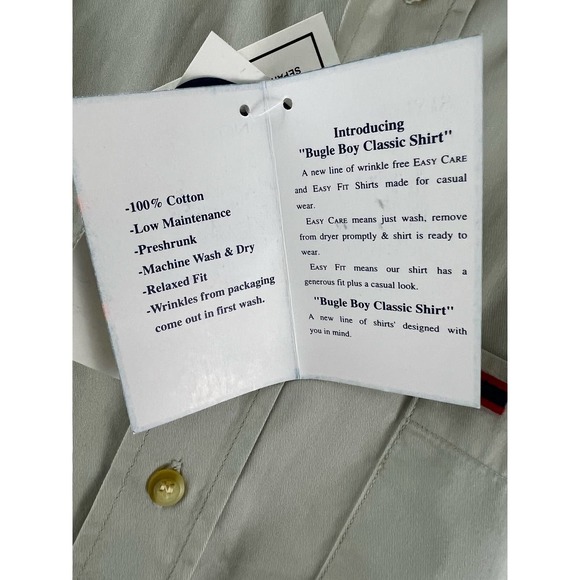 SEPAR
-100% Cotton
-Low Maintenance
-Preshrunk
-Machine Wash & Dry
-Relaxed Fit
-Wrinkles from packaging
come out in first wash.
Introducing
"Bugle Boy Classic Shirt"
A new line of wrinkle free EASY CARE
and EASY FIT Shirts made for casual
wear.
EASY CARE means just wash, remove
from dryer promptly & shirt is ready to
wear.
EASY FIT means our shirt has a
generous fit plus a casual look.
"Bugle Boy Classic Shirt"
A new line of shirts' designed with
you in mind.